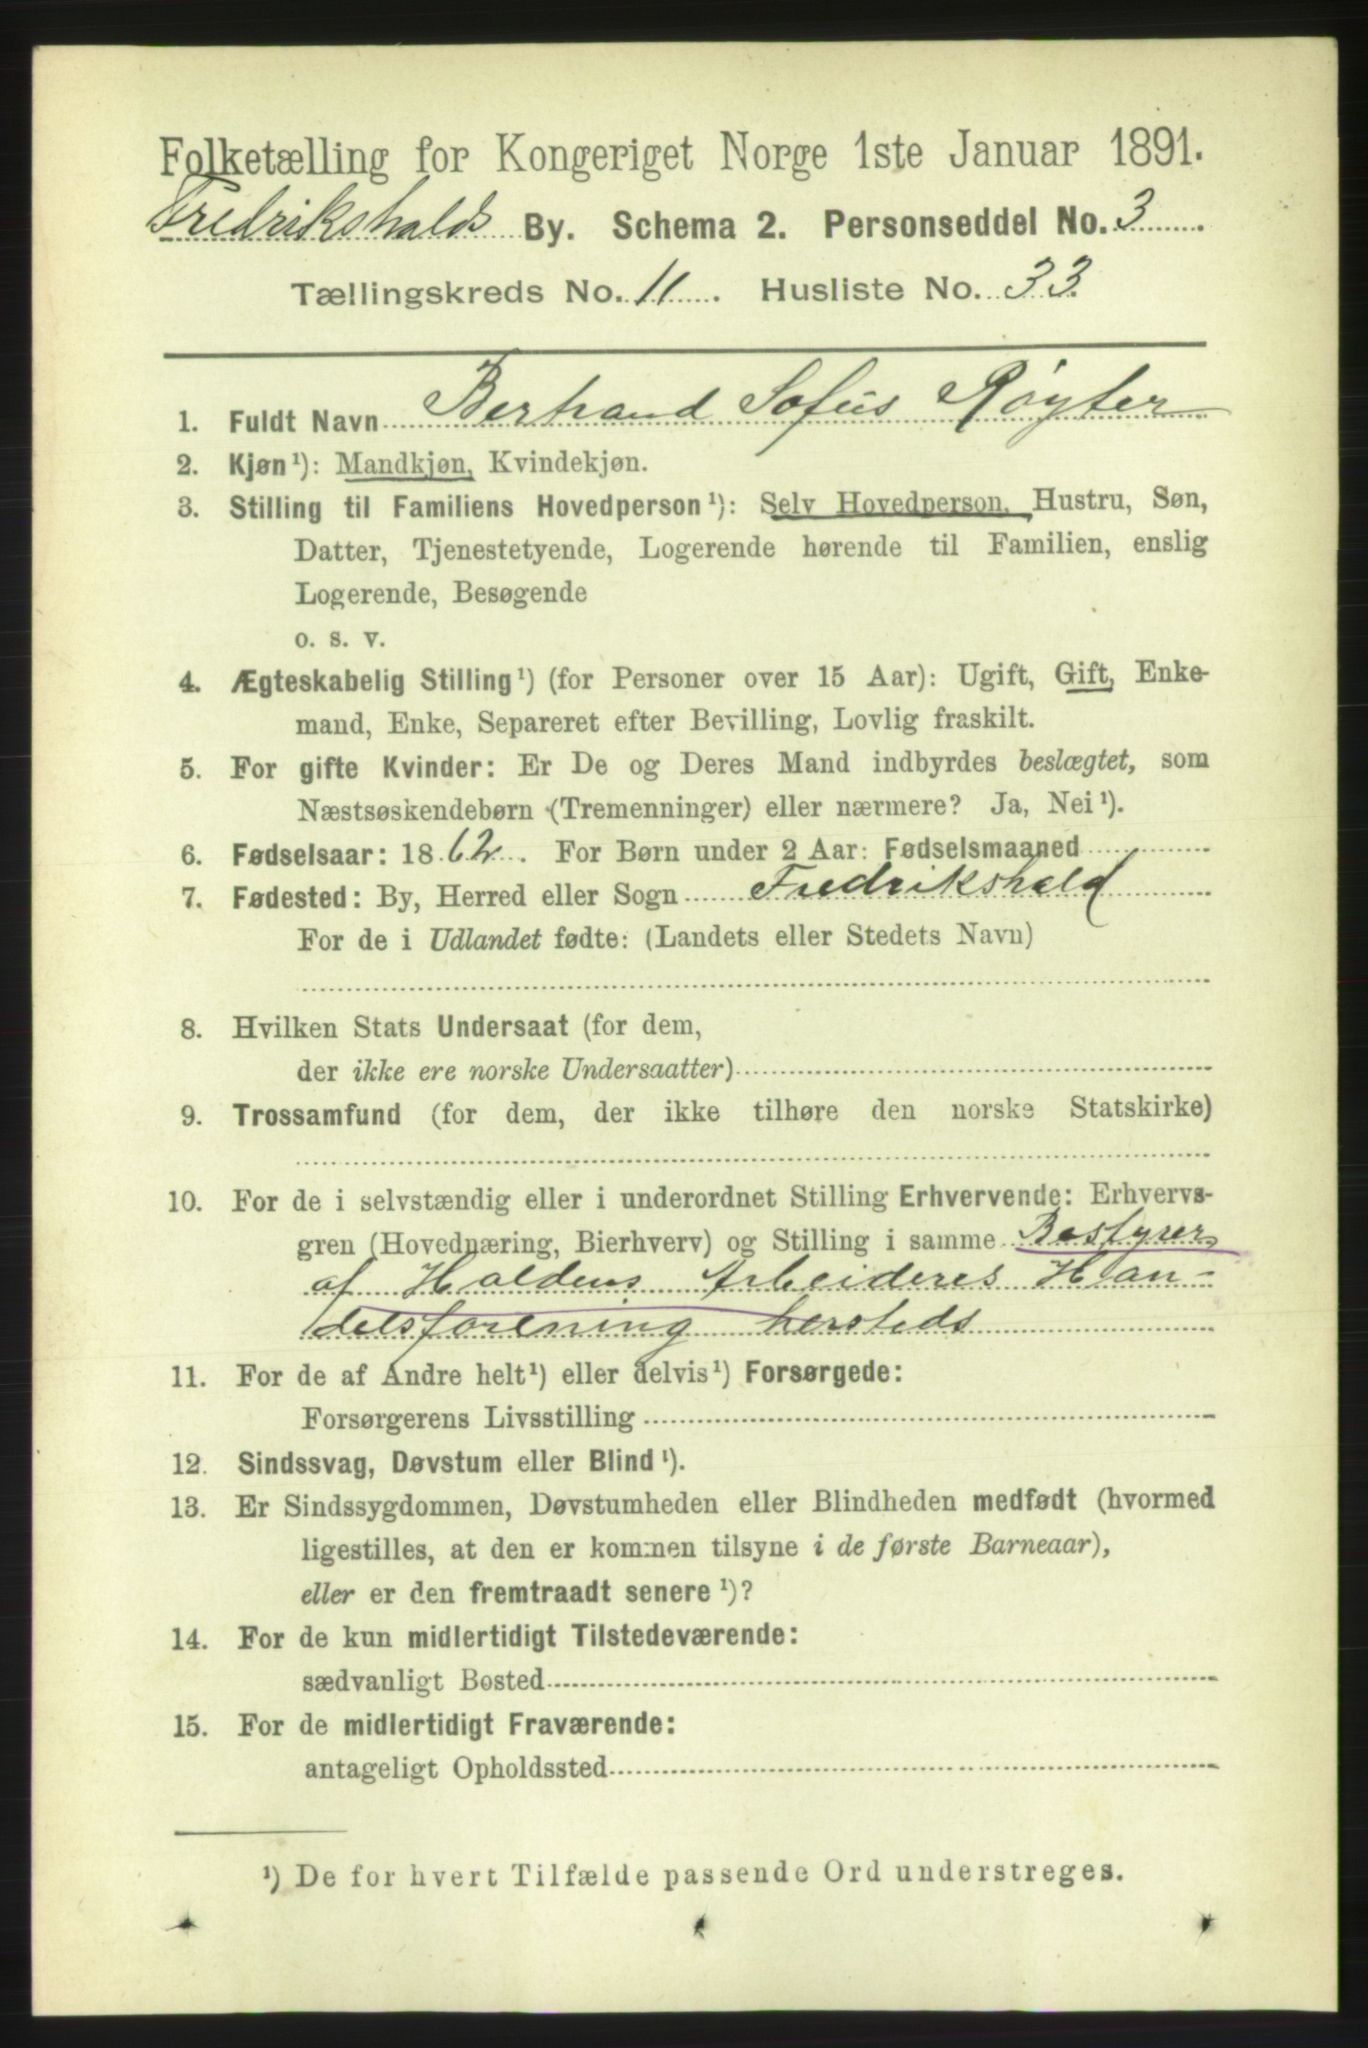 Folketælling for Kongeriget Norge 1ste Januar 1891.
Fredrikshalds By. Schema 2. Personseddel No. 3
Tællingskreds No. 11. Husliste No. 33.
1. Fuldt Navn Bertrand Sofus Røyter
2. Kjøn¹): Mandkjøn, Kvindekjøn.
3. Stilling til Familiens Hovedperson¹): Selv Hovedperson, Hustru, Søn,
Datter, Tjenestetyende, Logerende hørende til Familien, enslig
Logerende, Besøgende
o. s. v.
4. Ægteskabelig Stilling¹) (for Personer over 15 Aar): Ugift, Gift, Enke-
mand, Enke, Separeret efter Bevilling, Lovlig fraskilt.
5. For gifte Kvinder: Er De og Deres Mand indbyrdes beslægtet, som
Næstsøskendebørn (Tremenninger) eller nærmere? Ja, Nei¹).
6. Fødselsaar: 1862. For Børn under 2 Aar: Fødselsmaaned
7. Fødested: By, Herred eller Sogn Fredrikshald
For de i Udlandet fødte: (Landets eller Stedets Navn)
8. Hvilken Stats Undersaat (for dem,
der ikke ere norske Undersaatter)
9. Trossamfund (for dem, der ikke tilhøre den norske Statskirke)
10. For de i selvstændig eller i underordnet Stilling Erhvervende: Erhvervs-
gren (Hovednæring, Bierhverv) og Stilling i samme Bestyrer
af Haldens Arbeideres Han-
delsforening hersteds
11. For de af Andre helt¹) eller delvis¹) Forsørgede:
Forsørgerens Livsstilling
12. Sindssvag, Døvstum eller Blind¹).
13. Er Sindssygdommen, Døvstumheden eller Blindheden medfødt (hvormed
ligestilles, at den er kommen tilsyne i de første Barneaar),
eller er den fremtraadt senere¹)?
14. For de kun midlertidigt Tilstedeværende:
sædvanligt Bosted
15. For de midlertidigt Fraværende:
antageligt Opholdssted
¹) De for hvert Tilfælde passende Ord understreges.